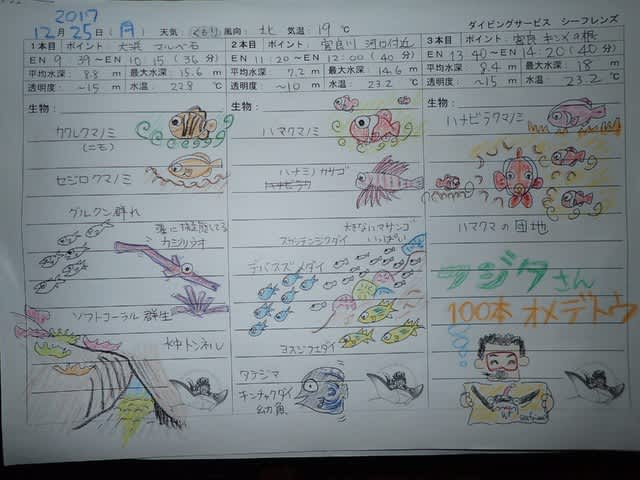 2017
12月 25日 (月) 天気: くもり 風向: 北 気温: 19 ℃ ダイビングサービス シーフレンズ
1本目 ポイント:
EN 9 : 39 ～ EN 10 : 15 (36 分)
平均水深: 8.8 m 最大水深: 15.6 m
透明度: ～15 m 水温: 22.8 ℃
生物:
カクレクマノミ
(ニモ)
セジロクマノミ
グルクン群れ
ソフトコーラル 群生
水中トンネル
2本目 ポイント: 宮良川 河口付近
EN 11 : 20 ～ EN 12 : 00 (40 分)
平均水深: 7.2 m 最大水深: 14.6 m
透明度: ～10 m 水温: 23.2 ℃
生物:
ハマクマノミ
ハナミノカサゴ
スカシテンジクダイ
デバスズメダイ
ヨスジフエダイ
タテジマ
キンチャクダイ
幼魚
3本目 ポイント: 宮良
EN 13 : 40 ～ EN 14 : 20 (40 分)
平均水深: 8.4 m 最大水深: 18 m
透明度: ～15 m 水温: 23.2 ℃
生物:
ハナビラクマノミ
ハマクマの団地
フジタさん
100本 オメデトウ